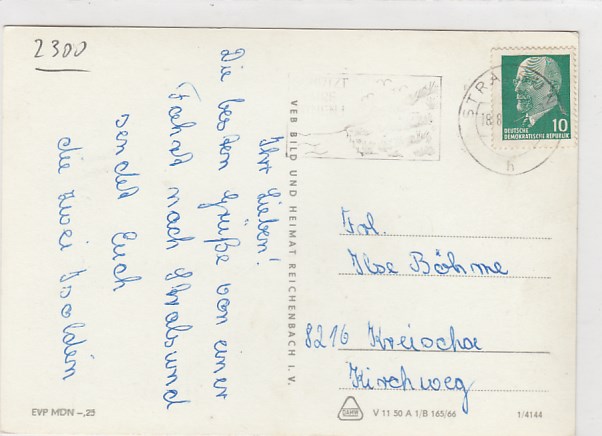 2300
Ihr Lieben!
Die besten Grüße von einer
Fahrt nach Stralsund
sendet Euch
die zwei Isolden
VEB BILD UND HEIMAT REICHENBACH I. V.
STRALSUND
18.8
h
DEUTSCHE
DEMOKRATISCHE REPUBLIK
10
Frl.
Ilse Böhme
8216 Kreischa
Kirchweg
EVP MDN -,25
V 11 50 A 1/B 165/66
1/4144